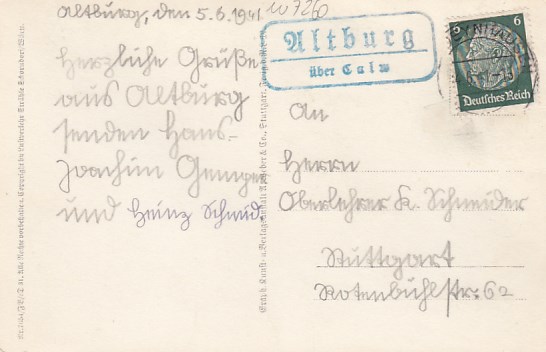 Altburg, den 5.6.1941
W 7260
Herzliche Grüße
aus Altburg
senden Hans-
Joachim Gemper
und Heinz Schmid
Altburg
über Calw
6 6
Deutsches Reich
An
Herrn
Oberlehrer K. Schneider
Stuttgart
Rotenbühlstr. 62